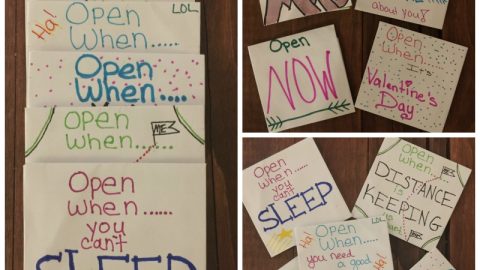 Ha!
LOL
Open
When.....
Open
When....
Open
When.....
ME
Open
when......
you
can't
SLEEP
about you?
Open
NOW
Open
When...
It's
Valentine's
Day
Open
When......
you
can't
SLEEP
Open
When...
ME
DISTANCE
is
KEEPING
LOL
Ha!
Open
When....
you need a good
Open